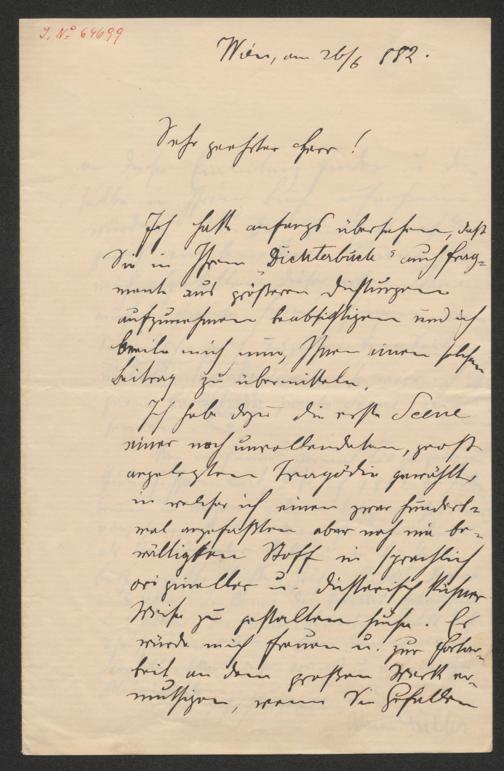 J. No 64699
Wien, am 26/6 882.
Sehr geehrter Herr!
Ich hatte anfangs übersehen, daß
Sie in Ihrem "Dichterbuche" auch Frag-
mente aus größeren Dichtungen
aufzunehmen beabsichtigen und ich
beeile mich nun, Ihnen einen solchen
Beitrag zu übermitteln.
Ich habe dazu die erste Scene
einer noch unvollendeten, groß
angelegten Tragödie gewählt,
in welcher ich einen zwar hundert-
mal angefaßten aber noch nie be-
wältigten Stoff in sprachlich
origineller u. dichterisch kühner
Weise zu gestalten suche. Es
würde mich freuen u. zur Fortar-
beit an dem großen Werk er-
muthigen, wenn Sie Gefallen